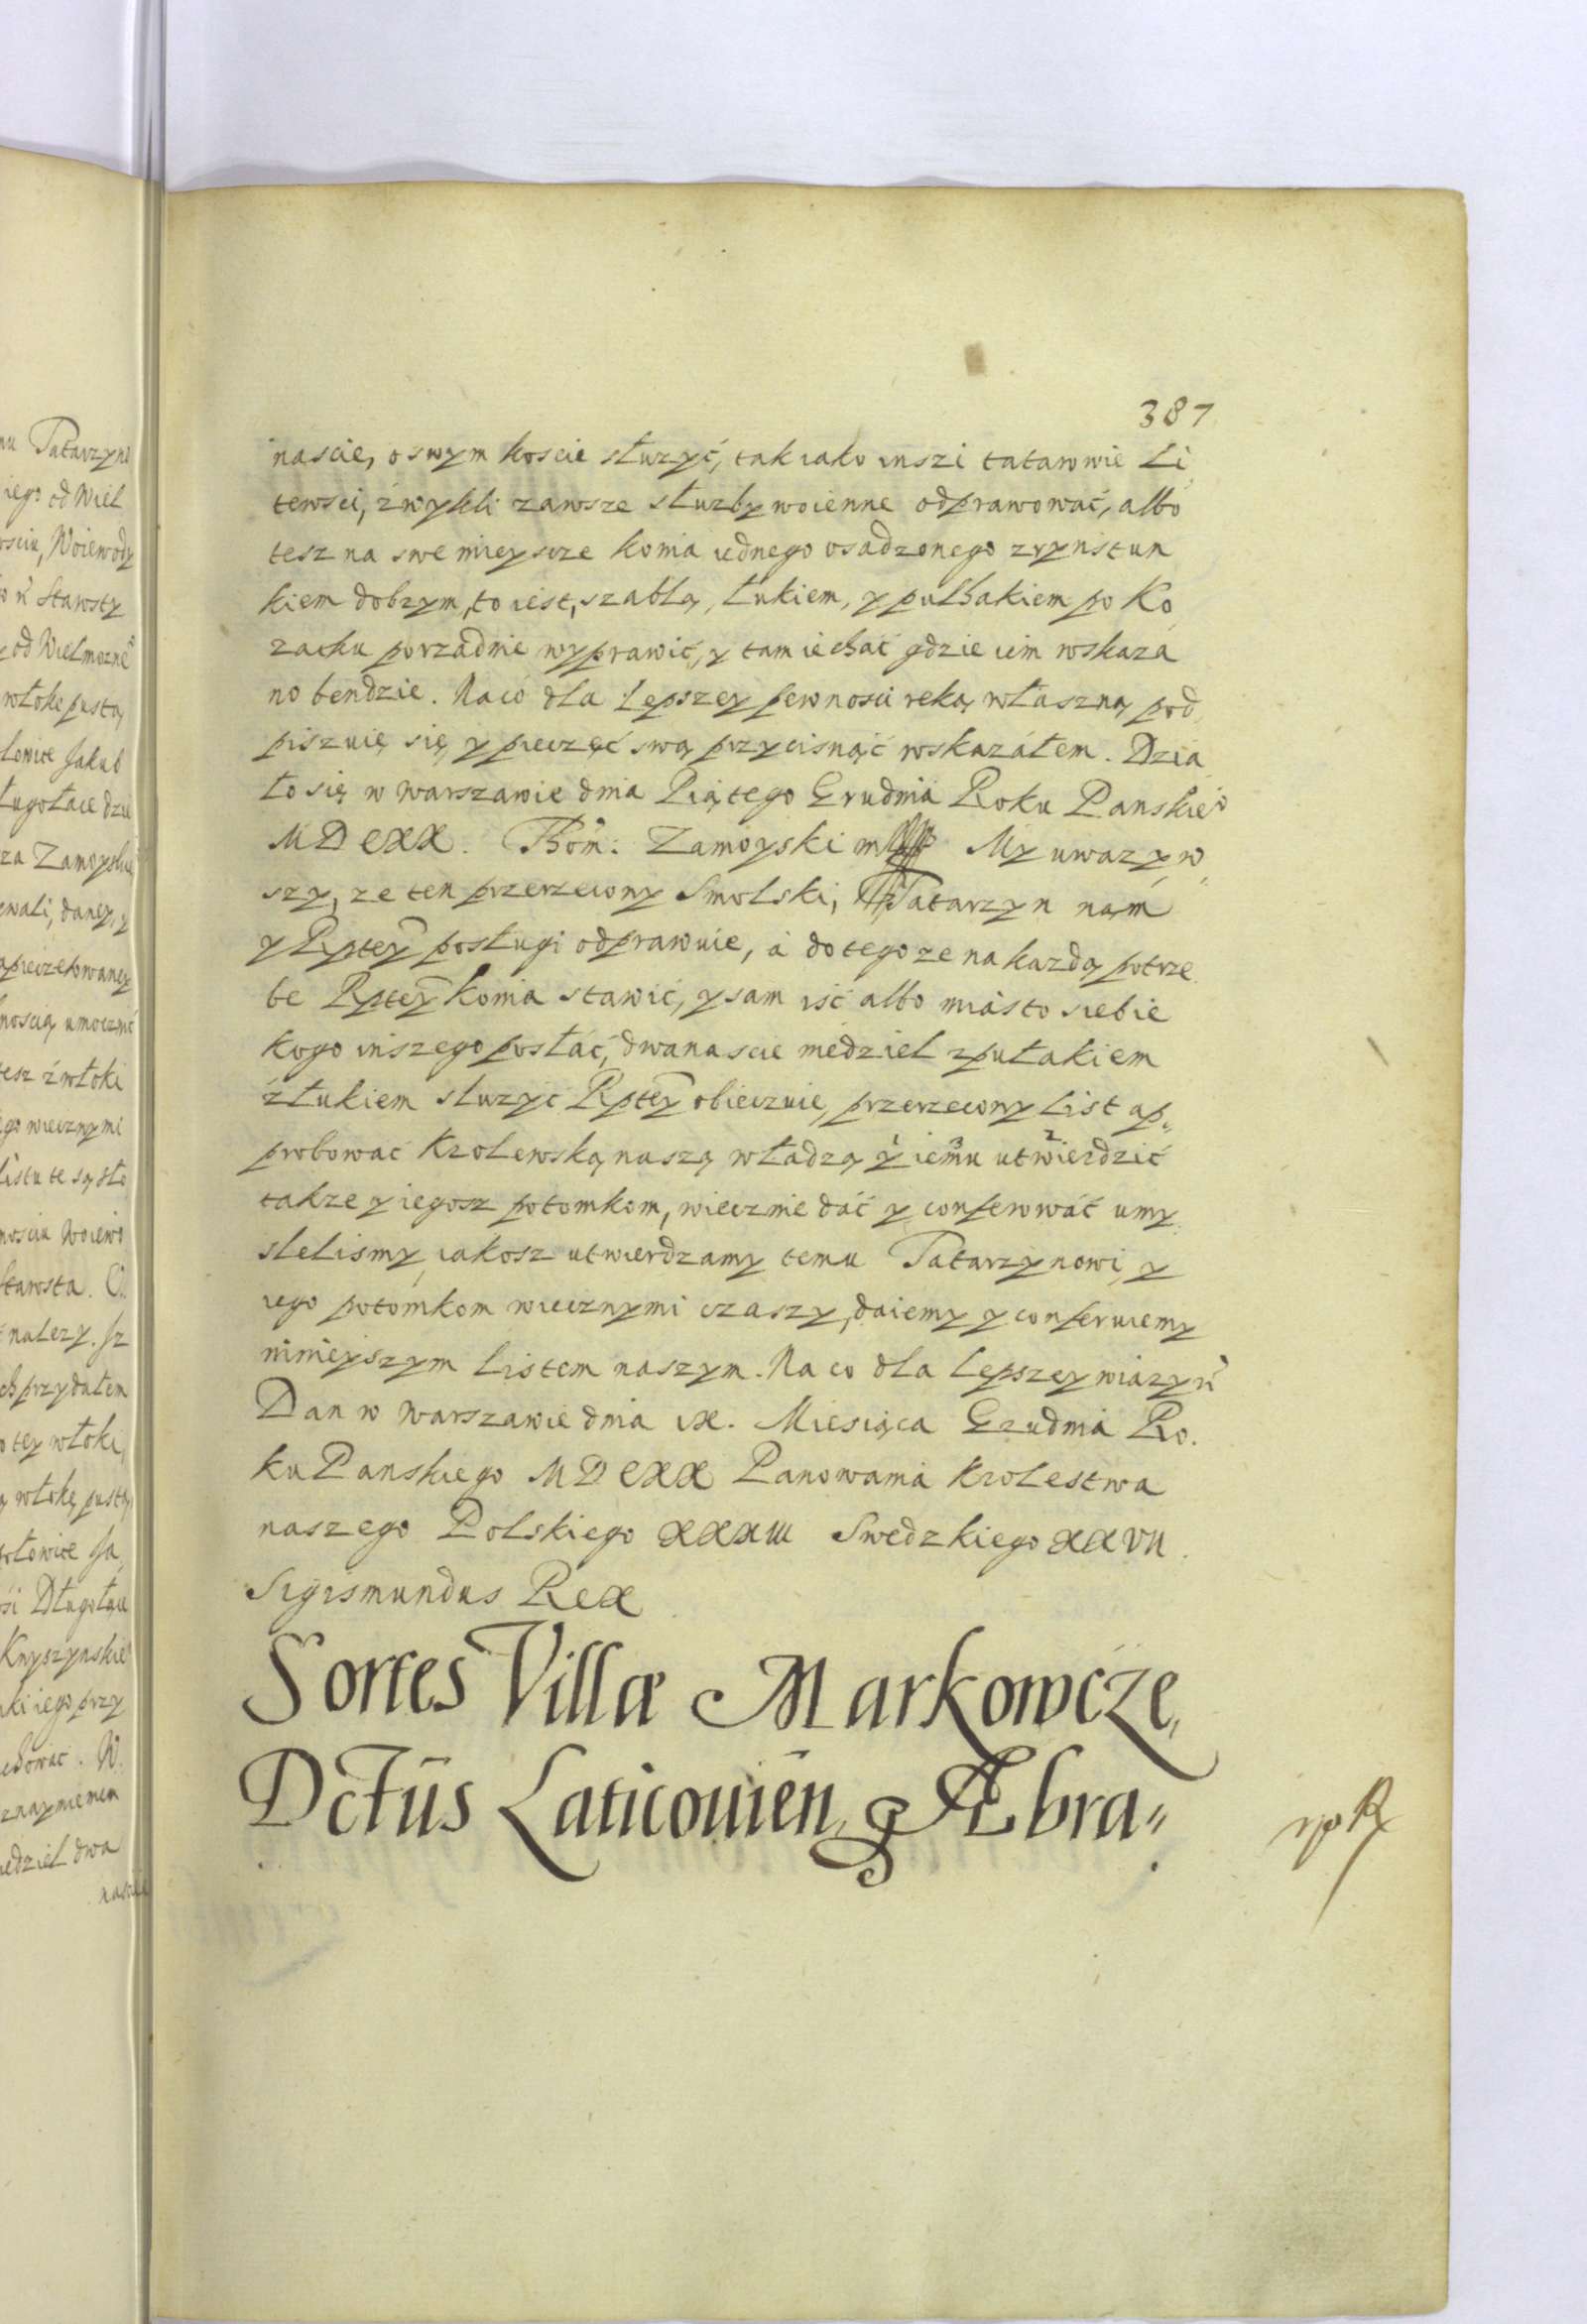 387
nascie, o swym koscie służyć, tak iako inszi tatarowie Li
tewsci, zwykli zawsze służby woienne odprawować, albo
tesz na swe mieysce konia iednego osadzonego z rynstun
kiem dobrym, to iest, szablą, łukiem, y pułhakiem po Ko
zacku porządnie wyprawić, y tam iechać gdzie iem wskaza
no bendzie. Na co dla lepszey pewnosci ręką właszną pod
piszuię się y pieczęć swą przycisnąć wskazałem. Dzia
ło się w Warszawie dnia Piątego Grudnia Roku Panskieo
MDCXX. Thom: Zamoyski My uwazyw„
szy, ze ten przerzeczony Smolski, Tatarzyn nam
y Rptey posługi odprawuie, a do tego ze na kazdą potrze
be Rptey konia stawić, y sam iść albo miasto siebie
kogo inszego posłać, dwanascie niedziel z pułakiem
z łukiem słuzyc Rptey obieczuie, przerzeczony List ap„
probowac Krolewską naszą władzą y iemu utwierdzić
takze y iegosz potomkom, wiecznie dać y conferować umy
slelismy, iakosz utwierdzamy temu Tatarzynowi, y
iego potomkom wiecznymi czaszy, daiemy y conferuiemy
ninieyszym listem naszym. Na co dla lepszey wiary ń
Dan w Warszawie dnia ix. Miesiąca Grudnia Ro.
ku Panskiego MDCXX Panowania Krolestwa
naszego Polskiego XXXIII Swedzkiego XXVII.
Sigismundus Rex
Sortes Villæ Markowcze,
Dctus Laticouien, Æbra„
mu Tatarzyno
iego od Wiel
Woiewody
ń Starosty
y od Wielmozneo
włoke pustą
Jakub
za Zamoyskie
ewali, daney, y
apieczetowaney
noscią umocznić
tesz z włoki
go wiecznymi
listu te są sło
nosciu Woiewo
Starosta.
nalezy.
ch przydałem
tey włoki,
włokę pustą
Długołęce
Knyszynskieo
iego przy
znaymienem
iedziel dwa
nascie